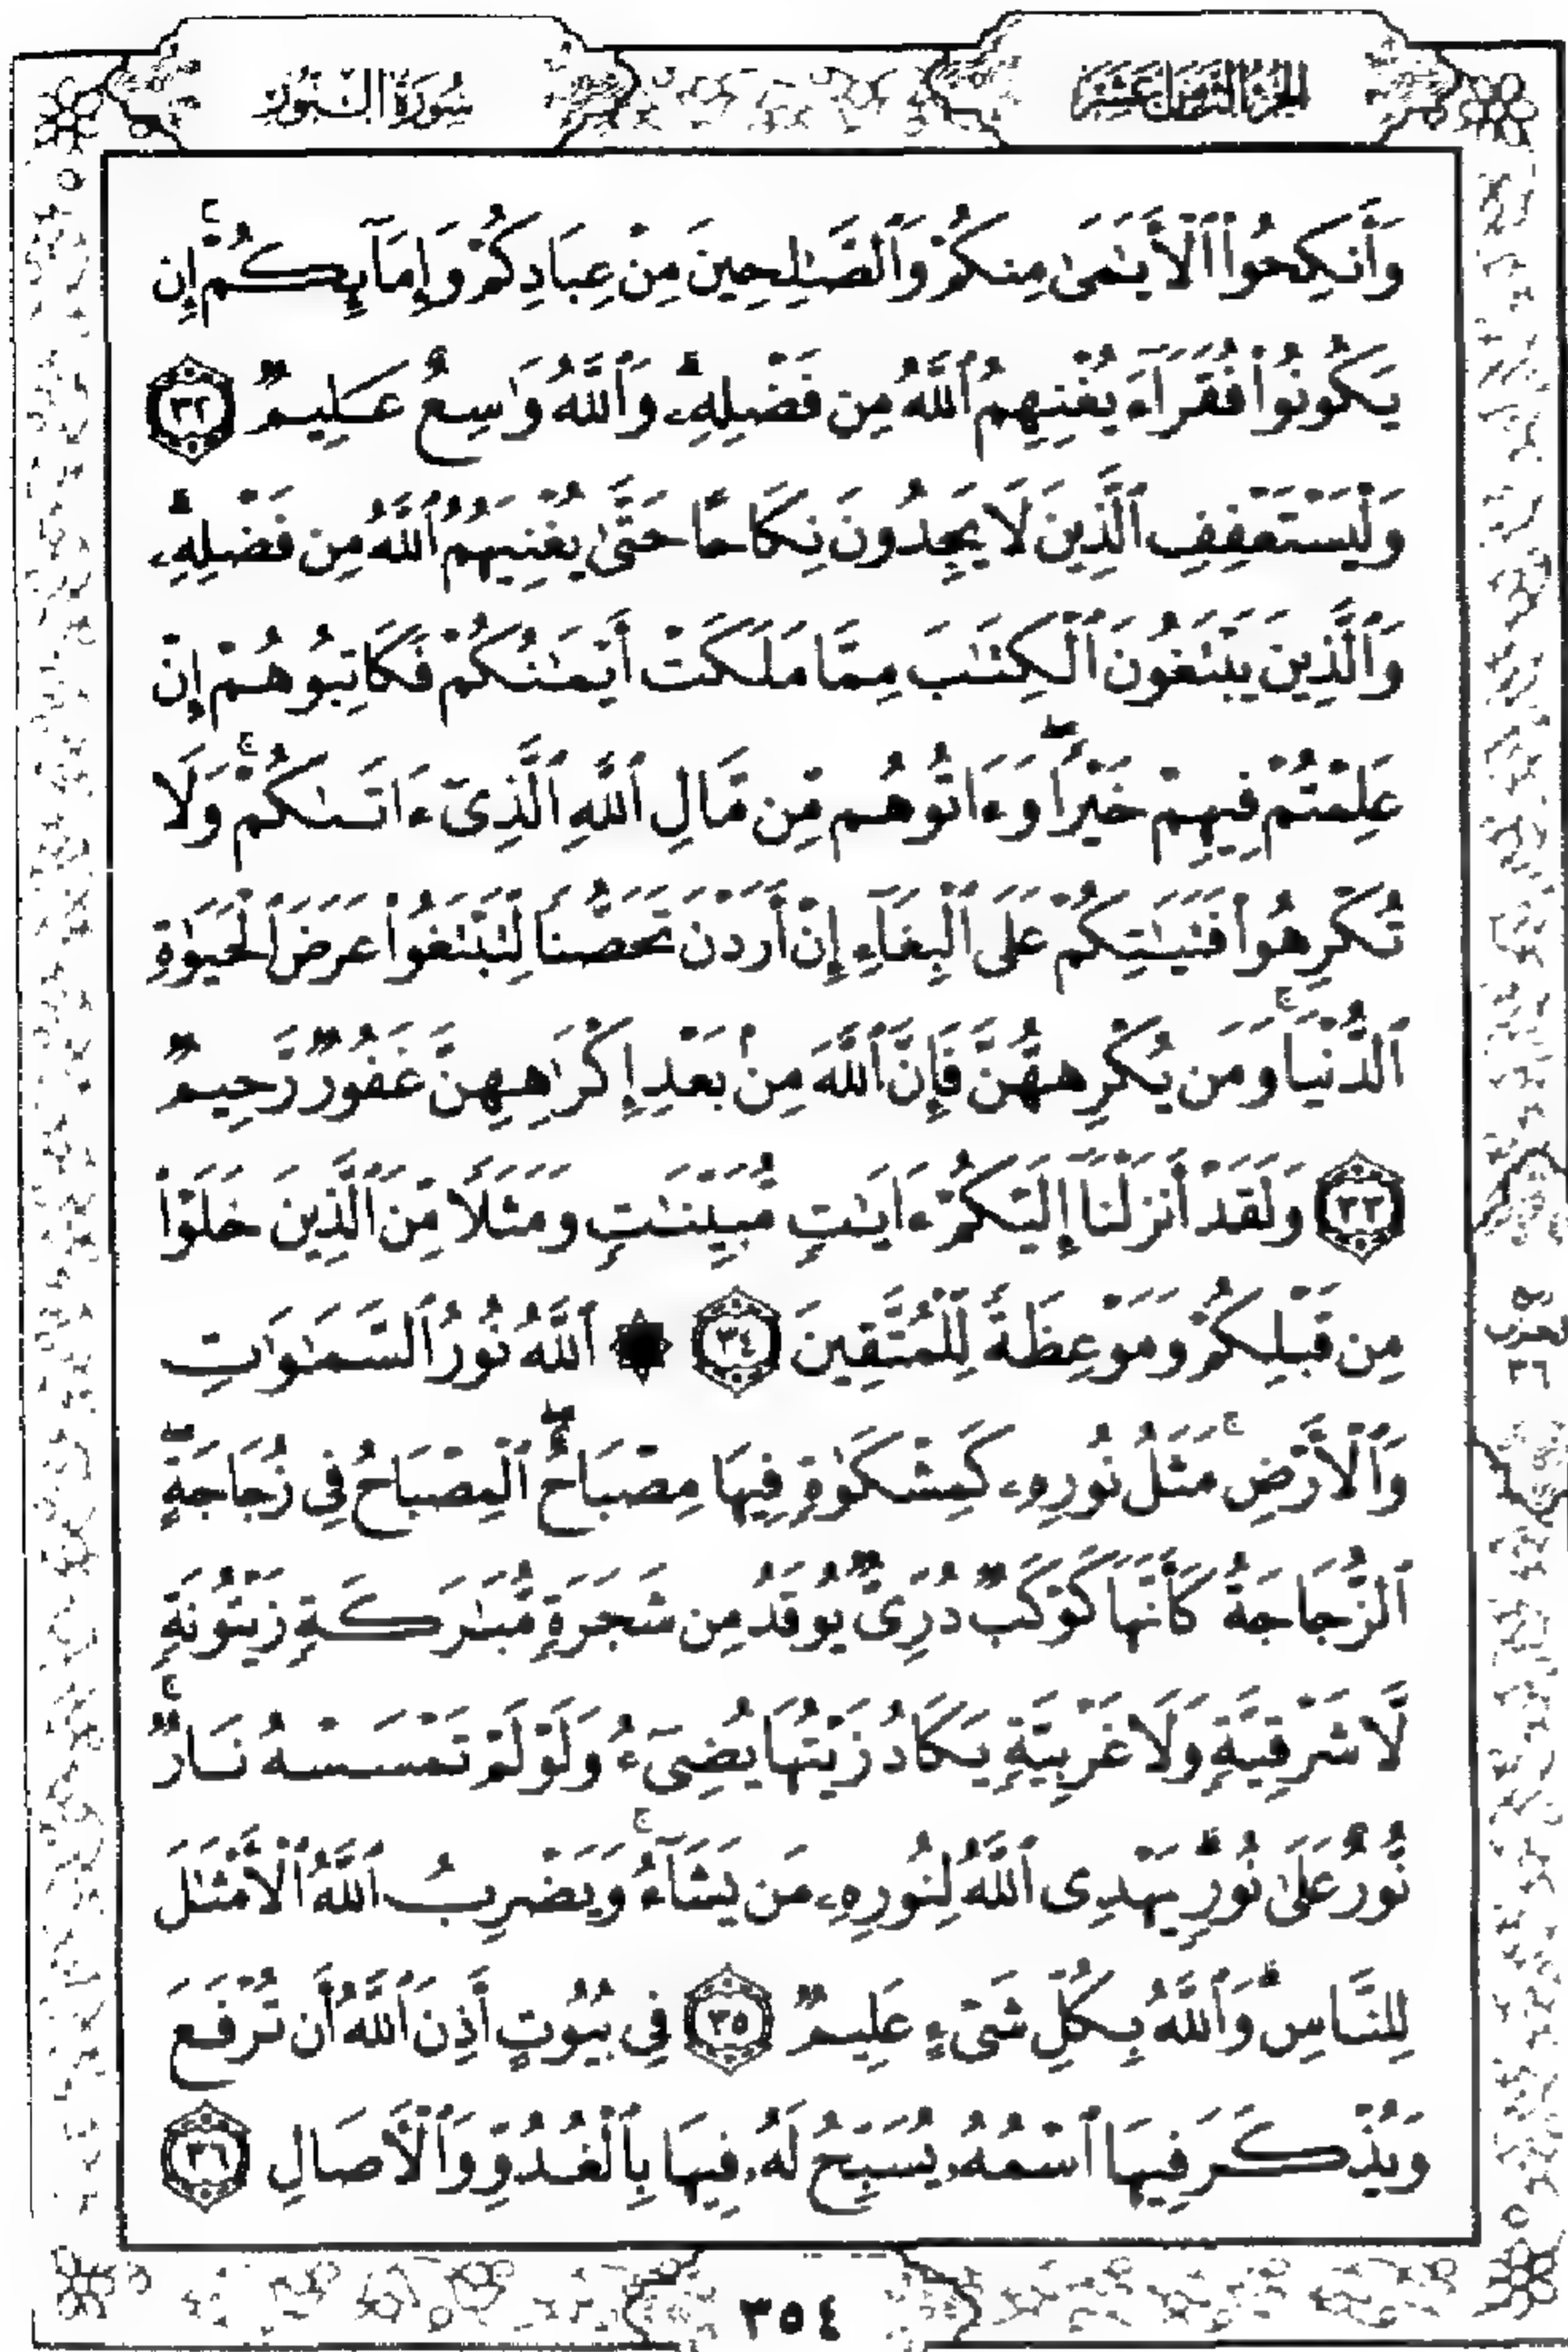 الجزء الثامن عشر
سورة النور
وَأَنكِحُوا۟ ٱلْأَيَـٰمَىٰ مِنكُمْ وَٱلصَّـٰلِحِينَ مِنْ عِبَادِكُمْ وَإِمَآئِكُمْ ۚ إِن
يَكُونُوا۟ فُقَرَآءَ يُغْنِهِمُ ٱللَّهُ مِن فَضْلِهِۦ ۗ وَٱللَّهُ وَٰسِعٌ عَلِيمٌ ٣٢
وَلْيَسْتَعْفِفِ ٱلَّذِينَ لَا يَجِدُونَ نِكَاحًا حَتَّىٰ يُغْنِيَهُمُ ٱللَّهُ مِن فَضْلِهِۦ ۗ
وَٱلَّذِينَ يَبْتَغُونَ ٱلْكِتَـٰبَ مِمَّا مَلَكَتْ أَيْمَـٰنُكُمْ فَكَاتِبُوهُمْ إِنْ
عَلِمْتُمْ فِيهِمْ خَيْرًا ۖ وَءَاتُوهُم مِّن مَّالِ ٱللَّهِ ٱلَّذِىٓ ءَاتَىٰكُمْ ۚ وَلَا
تُكْرِهُوا۟ فَتَيَـٰتِكُمْ عَلَى ٱلْبِغَآءِ إِنْ أَرَدْنَ تَحَصُّنًا لِّتَبْتَغُوا۟ عَرَضَ ٱلْحَيَوٰةِ
ٱلدُّنْيَا ۚ وَمَن يُكْرِههُّنَّ فَإِنَّ ٱللَّهَ مِنۢ بَعْدِ إِكْرَٰهِهِنَّ غَفُورٌ رَّحِيمٌ
٣٣ وَلَقَدْ أَنزَلْنَآ إِلَيْكُمْ ءَايَـٰتٍ مُّبَيِّنَـٰتٍ وَمَثَلًا مِّنَ ٱلَّذِينَ خَلَوْا۟
مِن قَبْلِكُمْ وَمَوْعِظَةً لِّلْمُتَّقِينَ ٣٤ ۞ ٱللَّهُ نُورُ ٱلسَّمَـٰوَٰتِ
وَٱلْأَرْضِ ۚ مَثَلُ نُورِهِۦ كَمِشْكَوٰةٍ فِيهَا مِصْبَاحٌ ۖ ٱلْمِصْبَاحُ فِى زُجَاجَةٍ ۖ
ٱلزُّجَاجَةُ كَأَنَّهَا كَوْكَبٌ دُرِّىٌّ يُوقَدُ مِن شَجَرَةٍ مُّبَـٰرَكَةٍ زَيْتُونَةٍ
لَّا شَرْقِيَّةٍ وَلَا غَرْبِيَّةٍ يَكَادُ زَيْتُهَا يُضِىٓءُ وَلَوْ لَمْ تَمْسَسْهُ نَارٌ ۚ
نُّورٌ عَلَىٰ نُورٍ ۗ يَهْدِى ٱللَّهُ لِنُورِهِۦ مَن يَشَآءُ ۚ وَيَضْرِبُ ٱللَّهُ ٱلْأَمْثَـٰلَ
لِلنَّاسِ ۗ وَٱللَّهُ بِكُلِّ شَىْءٍ عَلِيمٌ ٣٥ فِى بُيُوتٍ أَذِنَ ٱللَّهُ أَن تُرْفَعَ
وَيُذْكَرَ فِيهَا ٱسْمُهُۥ يُسَبِّحُ لَهُۥ فِيهَا بِٱلْغُدُوِّ وَٱلْـَٔاصَالِ ٣٦
٣٥٤